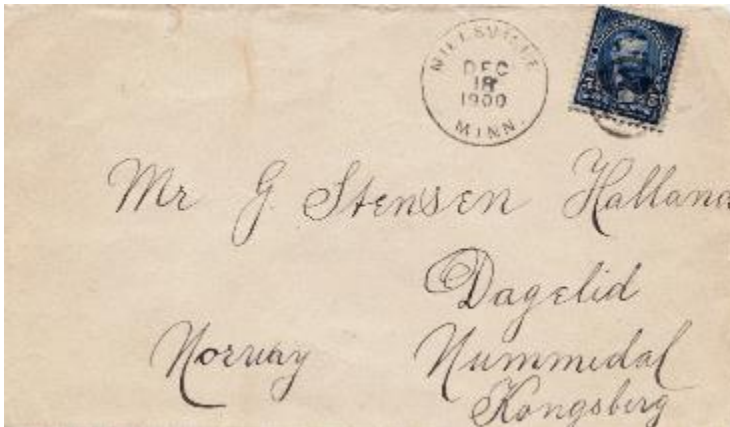 NIELSVILLE
DEC
18
1900
MINN.
Mr G. Stensen Halland
Dagelid
Norway Nummedal
Kongsberg